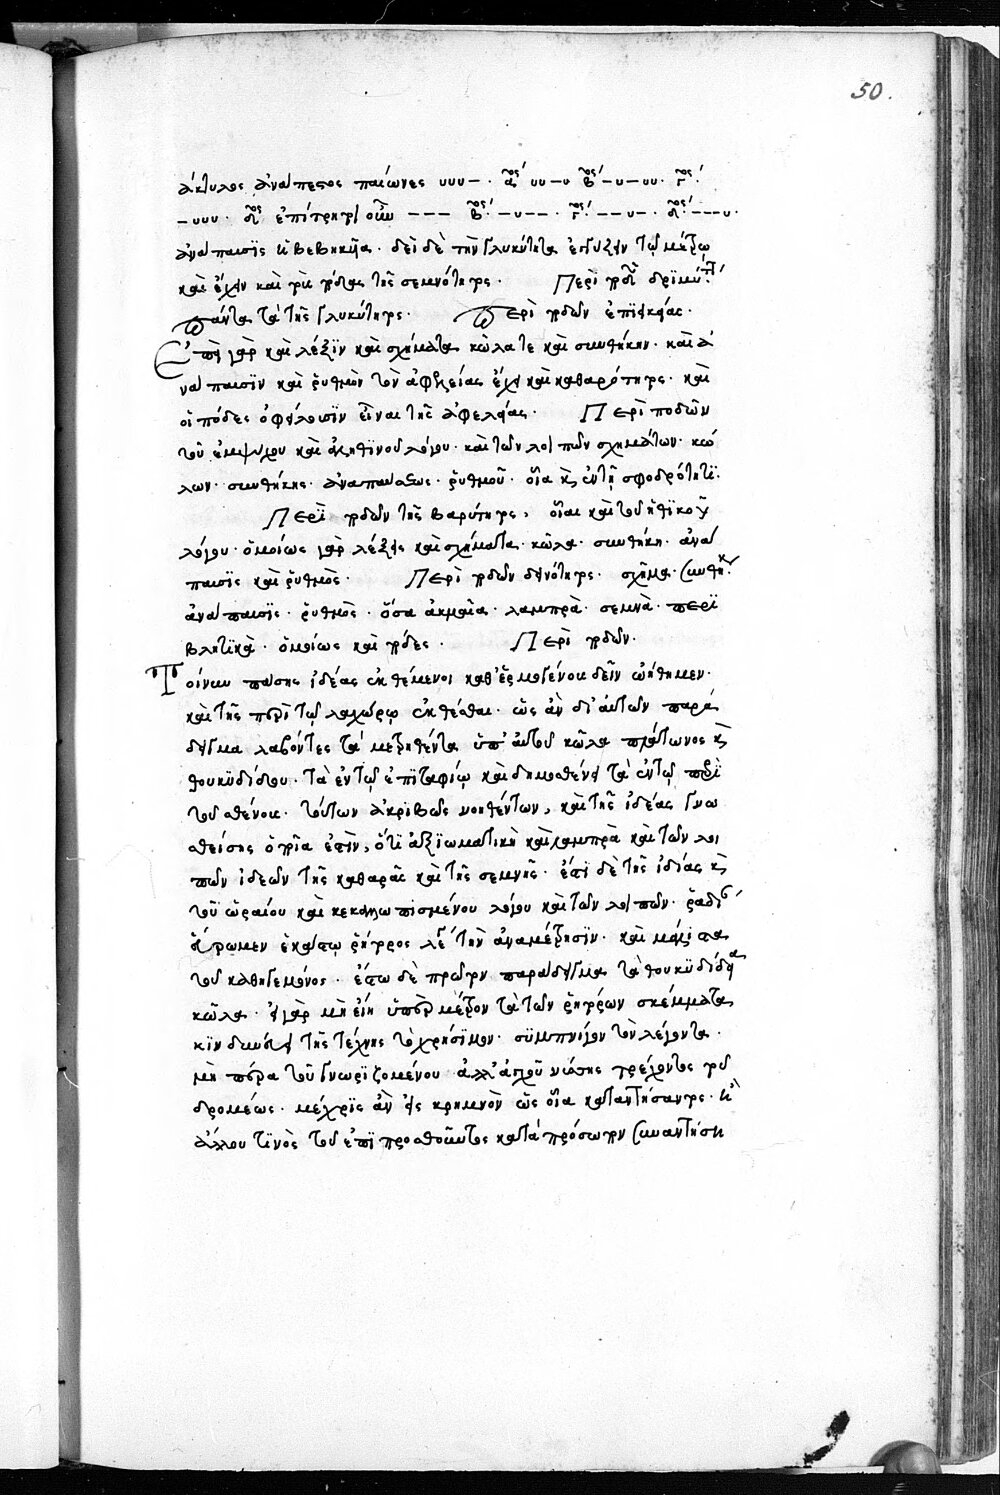 50.
δάκτυλος ἀνάπαιστος παίωνες υυυ–. αος υυ–υ βος –υ–υυ. γος
–υυυ. δος ἐπίτριτοι – – – βος –υ– –. γος – –υ–. δος – – –υ.
ἀνάπαυσις ἡ βεβηκυῖα. δεῖ δὲ τὴν γλυκύτητα ἐγγίζειν τῷ μέτρῳ
καὶ ἔχειν καὶ τοὺς πόδας τῆς σεμνότητος. Περὶ ποδῶν δριμύτητος
Πάντα τὰ τῆς γλυκύτητος. Περὶ ποδῶν ἐπιεικείας.
Ἐπεὶ γὰρ καὶ λέξιν καὶ σχήματα κῶλα τε καὶ συνθήκην. καὶ ἀ
νάπαυσιν καὶ ῥυθμὸν τὸν ἀφελείας ἔχει καὶ καθαρότητος. καὶ
οἱ πόδες ὀφείλουσιν εἶναι τῆς ἀφελείας. Περὶ ποδῶν
τοῦ ἐμψύχου καὶ ἀληθινοῦ λόγου. καὶ τῶν λοιπῶν σχημάτων. κώ
λων. συνθήκης. ἀναπαύσεως. ῥυθμοῦ. οἷα καὶ ἐν τῇ σφοδρότητι.
Περὶ ποδῶν τῆς βαρύτητος, οἷαι καὶ τοῦ ἠθικοῦ
λόγου. ὁμοίως γὰρ λέξις καὶ σχήματα. κῶλα. συνθήκη. ἀνά
παυσις καὶ ῥυθμὸς. Περὶ ποδῶν δεινότητος. σχῆμα. συνθήκη.
ἀνάπαυσις. ῥυθμὸς. ὅσα ἀκμαῖα. λαμπρὰ. σεμνὰ. περι
βλητικὰ. ὁμοίως καὶ πόδες. Περὶ ποδῶν.
Τοίνυν πάσης ἰδέας ἐκθέμενοι καθ᾽ ἑρμογένους δεῖν ᾠήθημεν.
καὶ τῆς περὶ τῷ λαχώρῳ ἐκθέσθαι. ὡς ἂν δι᾽ αὐτῶν παρά
δειγμα λαβόντες τὰ μετρηθέντα ὑπ᾽ αὐτοῦ κῶλα πλάτωνος καὶ
θουκυδίδου. τὰ ἐν τῷ ἐπιταφίῳ καὶ δημοσθένει τὰ ἐν τῷ περὶ
τοῦ σθένους. τούτων ἀκριβῶς νοηθέντων, καὶ τῆς ἰδέας γνω
σθείσης ὁποῖα ἐστὶν, ὅτι ἀξιωματικὴ καὶ λαμπρὰ καὶ τῶν λοι
πῶν ἰδεῶν τῆς καθαρᾶς καὶ τῆς σεμνῆς. ἔστι δὲ τῆς ἰδίας καὶ
τοῦ ὡραίου καὶ κεκαλλωπισμένου λόγου καὶ τῶν λοιπῶν. ῥᾳδίως
εὕρωμεν ἑκάστῳ ῥήτορος τὴν ἀναμέτρησιν. καὶ μάλιστα
τοῦ καθηγεμόνος. ἔστω δὲ πρῶτον παράδειγμα τὰ θουκυδίδεια
κῶλα. εἰ γὰρ μὴ εἴη ὑπὲρ μέτρον τὰ τῶν ῥητόρων σκέμματα
κινδυνεύει τῆς τέχνης τὸ χρήσιμον. συμπνίγον τὸν λέγοντα.
μὴ πέρα τοῦ γνωριζομένου ἀλλ᾽ ἁπλοῦ νεότης τρέχοντος
δρομέως. μέχρις ἂν εἰς κρημνὸν ὡς οἷα καταντήσαντος. ἢ
ἄλλου τινὸς τοῦ ἐπιπροσθοῦντος κατὰ πρόσωπον συναντήσει